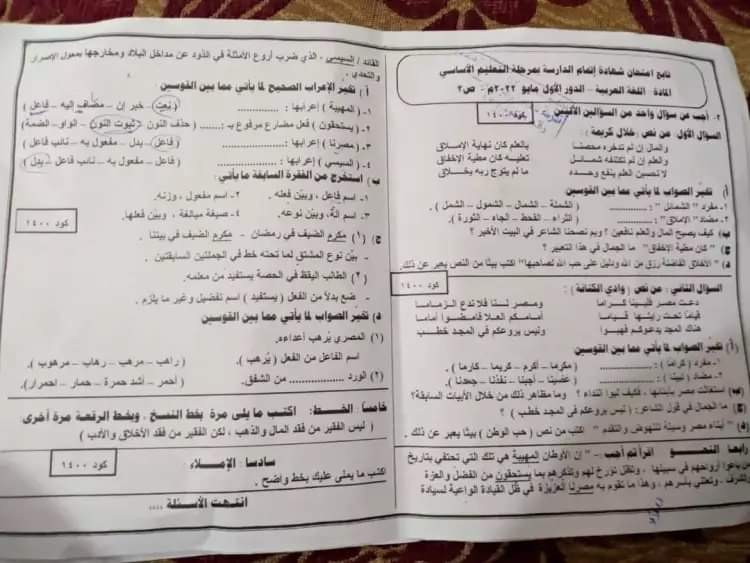 تابع امتحان شهادة إتمام الدارسة بمرحلة التعليم الأساسي
المادة: اللغة العربية - الدور الأول مايو ٢٠٢٢م - ص٢
كود ١٤٠٠
٢. أجب عن سؤال واحد من السؤالين الآتيين
السؤال الأول: من نص (خلال كريمة) :
والمال إن لم تدخره محصنا بالعلم كان نهاية الإملاق
والعلم إن لم تكتنفه شمائل تعليه كان مطية الإخفاق
لا تحسبن العلم ينفع وحده ما لم يتوج ربه بخلاق
(أ) تخيّر الصواب لما يأتي مما بين القوسين
١- مفرد " الشمائل " : ( الشملة – الشمال – الشمول – الشمل ).
٢- مضاد " الإملاق" : ( الثراء – القحط – الجاه – الثورة ).
(ب) كيف يصبح المال والعلم نافعين ؟ وبم نصحنا الشاعر في البيت الأخير ؟
(ج) " كان مطية الإخفاق" ما الجمال في هذا التعبير ؟
(د) "الأخلاق الفاضلة رزق من الله ودليل على حب الله لصاحبها" اكتب بيتًا من النص يعبر عن ذلك.
كود ١٤٠٠
السؤال الثاني: من نص ( وادي الكنانة ) :
دعت مصر فلبينا كراما ومصر لنا فلا تدع الزماما
قياما تحت رايتها قياما أمامكم العلا فامضوا أماما
هناك المجد يدعوكم فهبوا وليس يروعكم في المجد خطب
(أ) تخيّر الصواب لما يأتي مما بين القوسين
١- مفرد ( كراما ) : ( مكرما – أكرم – كريما – كارما ).
٢- مضاد ( لبينا ) : ( عصينا – أجبنا – نفذنا – جحدنا ).
(ب) استغاثت مصر بأبنائها، فكيف لبوا النداء ؟ وما مظاهر ذلك من خلال الأبيات السابقة؟
(ج) ما الجمال في قول الشاعر: ( ليس يروعكم في المجد خطب ) ؟
(د) " أبناء مصر وسيلة للنهوض والتقدم " اكتب من نص (حب الوطن ) بيتًا يعبر عن ذلك.
رابعا النحو اقرأ ثم أجب :- " إن الأوطان المهيبة هي تلك التي تحتفي بتاريخ
من باعوا أرواحهم في سبيلها ، وتظل تؤرخ لهم وتذكرهم بما يستحقون من الفضل والعزة
والشرف ، وتعتني بأسرهم ، وهذا ما تقوم به مصرنا العزيزة في ظل القيادة الواعية لسيادة
القائد / السيسي ، الذي ضرب أروع الأمثلة في الذود عن مداخل البلاد ومخارجها بمعول الإصرار
والتحدي .
أ ) تخيّر الإعراب الصحيح لما يأتي مما بين القوسين
١- (المهيبة ) إعرابها : ............ ( نعت – خبر إن – مضاف إليه – فاعل )
٢- (يستحقون) فعل مضارع مرفوع بـ: ....... ( حذف النون – ثبوت النون – الواو - الضمة)
٣- ( مصرنا ) إعرابها : ............ ( فاعل – بدل – مفعول به – نائب فاعل )
٤- ( السيسي ) إعرابها: ............ ( فاعل – مفعول به – نائب فاعل – بدل )
ب) استخرج من الفقرة السابقة ما يأتي:
١- اسم فاعل ، وبيّن فعله . ٢- اسم مفعول ، وزنه .
٣- اسم آلة، وبيّن نوعه. ٤- صيغة مبالغة ، وبيّن فعلها.
كود ١٤٠٠
ج) (١) مكرم الضيف في رمضان – مكرم الضيف في بيتنا .
- بيّن نوع المشتق لما تحته خط في الجملتين السابقتين .
(٢) الطالب اليقظ في الحصة يستفيد من معلمه.
- ضع بدلاً من الفعل ( يستفيد ) اسم تفضيل وغير ما يلزم .
د) تخيّر الصواب لما يأتي مما بين القوسين
(١) المصري يُرهب أعداءه.
اسم الفاعل من الفعل ( يُرهب ). ( راهب – مرهب – رهاب – مرهوب ).
(٢) الورد ............ من الشفق. ( أحمر – أشد حمرة – حمار – احمرار).
خامسًا : الخط: اكتب ما يلى مرة بخط النسخ ، وبخط الرقعة مرة أخرى:
( ليس الفقير من فقد المال والذهب ، لكن الفقير من فقد الأخلاق والأدب )
كود ١٤٠٠
سادسا : الإملاء
اكتب ما يملى عليك بخط واضح .
انتهت الأسئلة ....